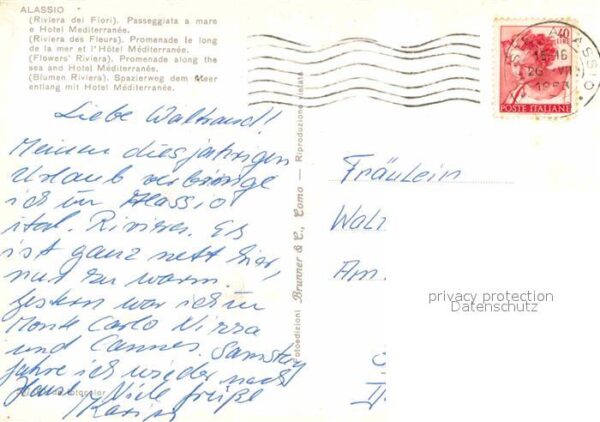 ALASSIO
(Riviera dei Fiori). Passeggiata a mare
e Hotel Méditerranée.
(Riviera des Fleurs). Promenade le long
de la mer et l'Hôtel Méditerranée.
(Flowers' Riviera). Promenade along the
sea and Hotel Méditerranée.
(Blumen Riviera). Spazierweg dem Meer
entlang mit Hotel Méditerranée.
Liebe Waltraud!
Meinen diesjährigen
Urlaub verbringe
ich in Alassio
ital. Riviera. Es
ist ganz nett hier,
nur zu warm.
Gestern war ich in
Monte Carlo Nizza
und Cannes. Samstag
fahre ich wieder nach
Haus. Viele Grüße
Karin
Fotoedizioni Brunner & C., Como — Riproduzione vietata
40
LIRE
POSTE ITALIANE
ALASSIO
Fräulein
Wal
Am
privacy protection
Datenschutz